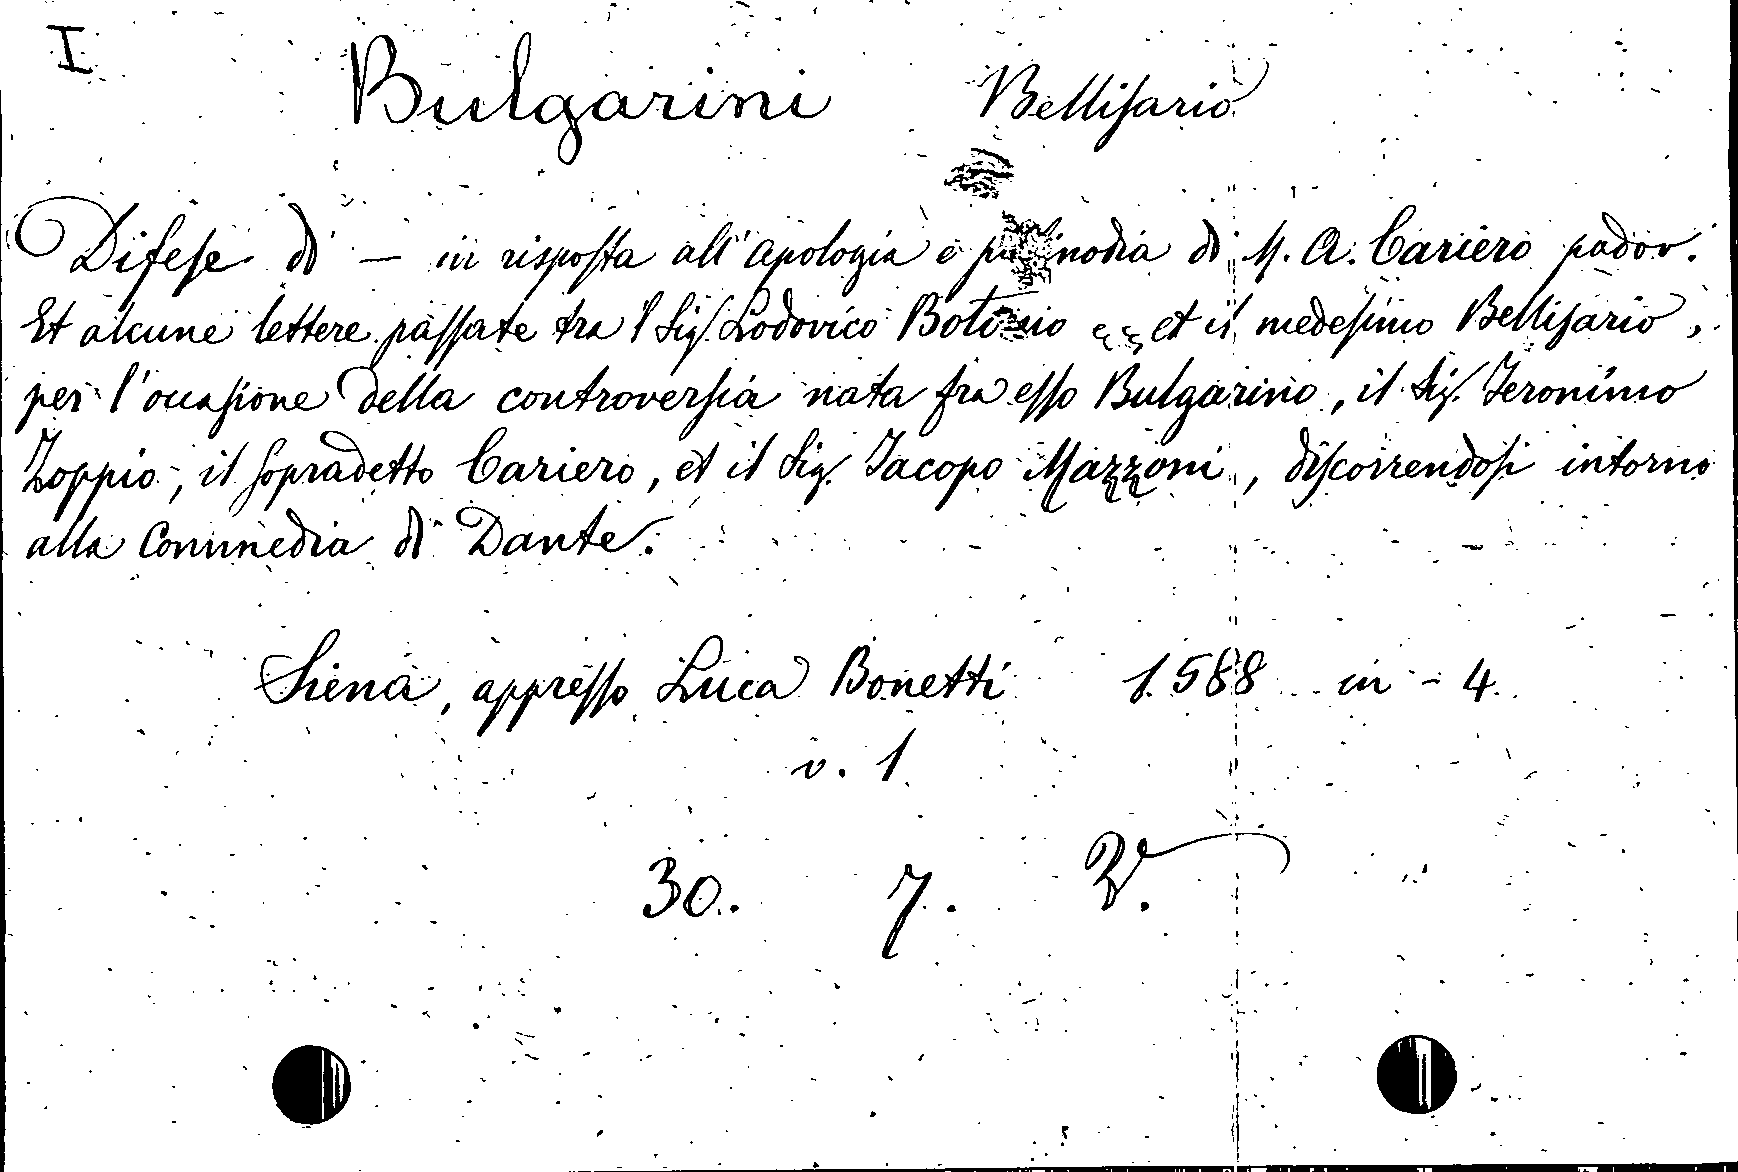 I
Bulgarini Bellisario
Difese di — in risposta all'apologia e palinodia di M. A. Cariero padov.
Et alcune lettere passate tra 'l Sig. Lodovico Botonio et il medesimo Bellisario,
per l'occasione della controversia nata fra esso Bulgarino, il Sig. Jeronimo
Zoppio, il sopradetto Cariero, et il Sig. Jacopo Mazzoni, discorrendosi intorno
alla Commedia di Dante.
Siena, appresso Luca Bonetti 1588 in - 4.
v. 1
30. 7.